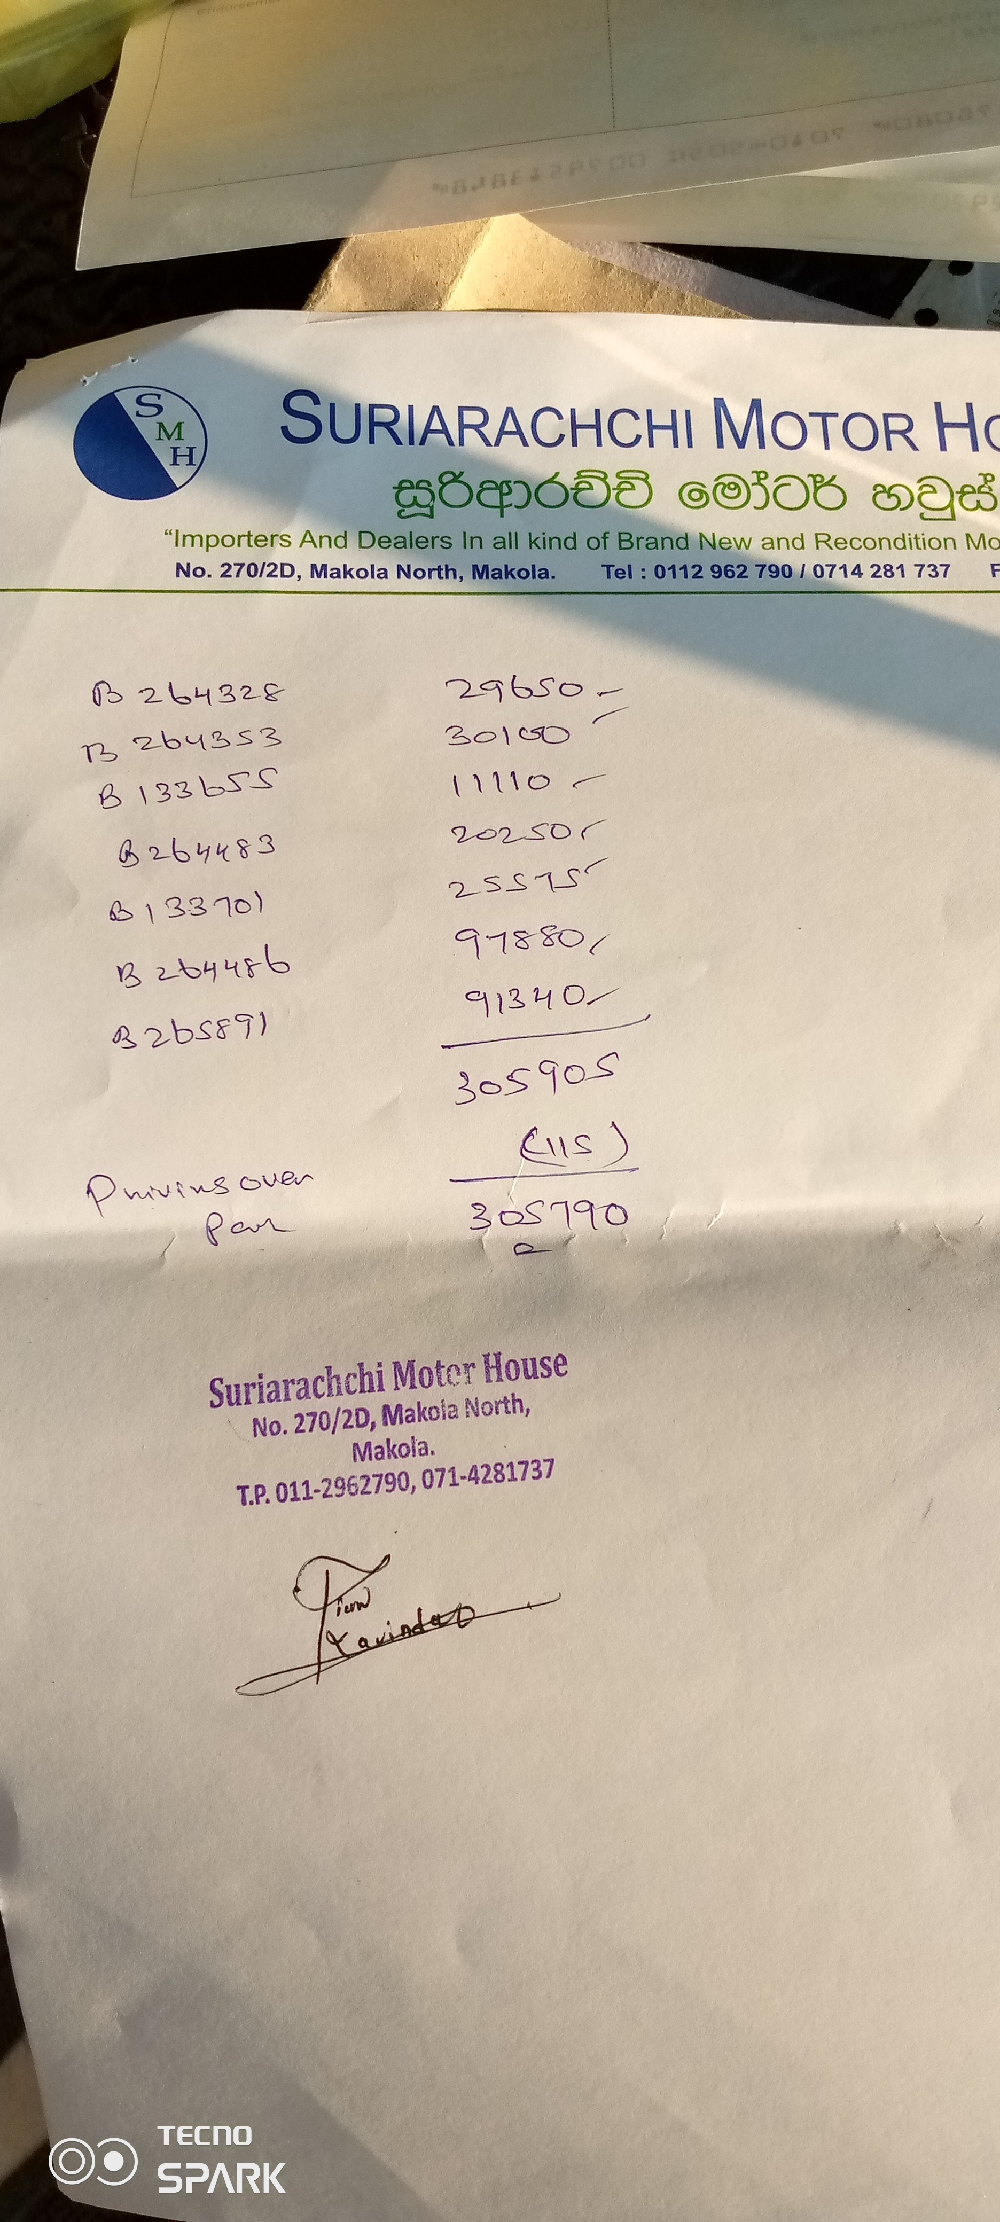 S
M
H
SURIARACHCHI MOTOR
සූරිආරච්චි මෝටර් හවුස්
"Importers And Dealers In all kind of Brand New and Recondition
No. 270/2D, Makola North, Makola. Tel : 0112 962 790 / 0714 281 737
B 264328 29650
B 264353 30100
B 133655 11110
B 264483 20250
B 133701 25575
B 264486 97880
B 265891 91340
305905
(115)
over
305790
Suriarachchi Motor House
No. 270/2D, Makola North,
Makola.
T.P. 011-2962790, 071-4281737
TECNO
SPARK